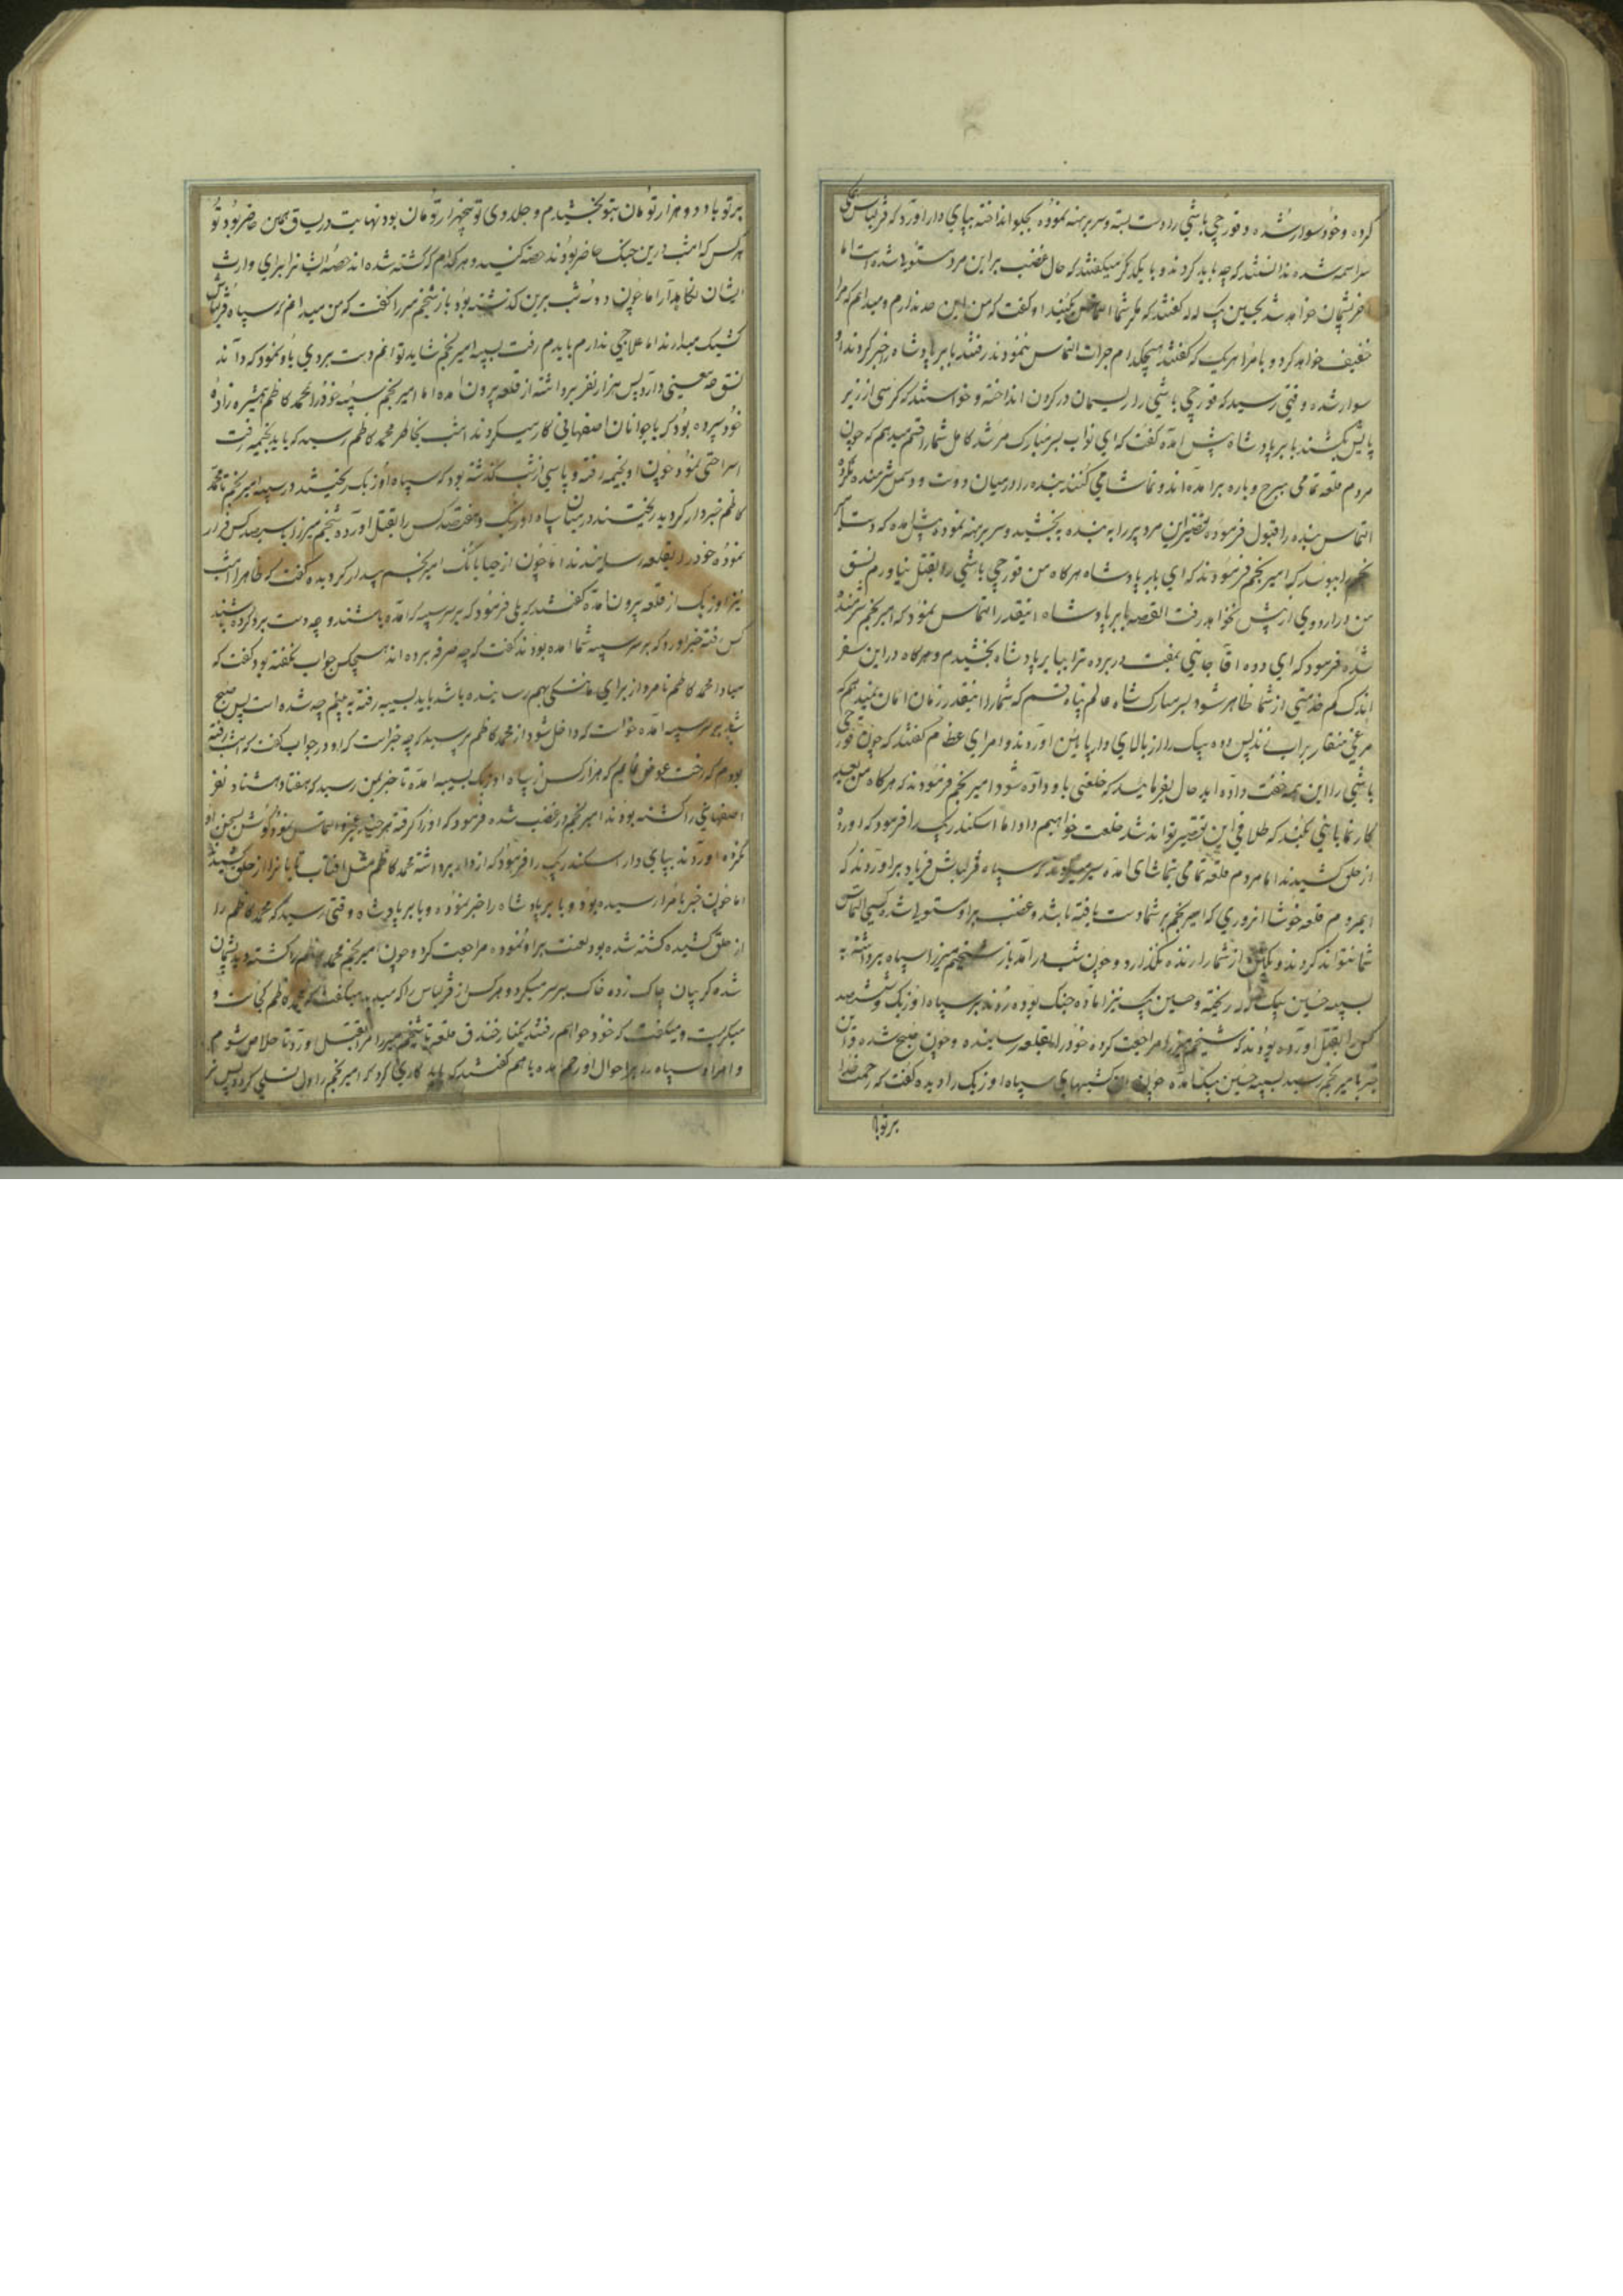 کرده و خود سوار شده و قورچی باشی را دست بسته و سر برهنه نموده بجلو انداخته بپای دار اورد که قزلباش همکی
سراسمه شده ندانستند که چه باید کرد و با یکدیکر میکفتند که حال غضب بر این مرد مستولی شده است اما
اخر پشیمان خواهد شد بحسین بیک لله کفتند که مکر شما التماس بکنید او کفت که من این حد ندارم و میدانم که مرا
خفیف خواهد کرد و بامرا هر یک که کفتند هیچکدام جرات التماس ننمودند رفتند بابر پادشاه را خبر کردند او
سوار شده وقتی رسید که قورچی باشی را ریسمان در کردن انداخته و خواستند که کرسی از زیر
پایش بکشند بابر پادشاه پیش امده کفت که ای نواب بسر مبارک مرشد کامل شما را قسم میدهم که چون
مردم قلعه تمامی ببرج و باره برامده اند و تماشا می کنند بنده را در میان دوست و دشمن شرمنده نکرده
التماس بنده را قبول فرموده تقصیر این مرد پیر را به بنده ببخشید و سر برهنه نموده پیش امده که دست امیر
نجم را ببوسد که امیر نجم فرمودند که ای بابر پادشاه هرکاه من قورچی باشی را بقتل نیاورم نسق
من در اردوی از پیش نخواهد رفت القصه بابر پادشاه اینقدر التماس نمود که امیر نجم شرمنده
شده فرمود که ای دده اقا جانی بمفت در برده ترا ببابر پادشاه بخشیدم و هرکاه در این سفر
اندک کم خدمتی از شما ظاهر شود بسر مبارک شاه عالم پناه قسم که شما را اینقدر زمان امان نمیدهم که
مرغی منقار بر اب زند پس دده بیک را از بالای دار پایین اوردند و امرای عظام کفتند که چون قورچی
باشی را این همه خفت داده اید حال بفرمایید که خلعتی باو داده شود امیر نجم فرمودند که هرکاه من بعد
کار نمایانی بکند که تلافی این تقصیر تواند شد خلعت خواهیم داد اما اسکندر بیک را فرمود که اورده
از حلق کشیدند اما مردم قلعه تمامی بتماشای امده سپاه قزلباش فریاد براوردند که
ایمردم قلعه خوشا انروزی که امیر نجم بر شما دست یافته باشد و غضب بر او مستولی شده کسی التماس
شما نتواند کرد و یکنفر از شما را زنده نکذارد و چون شب درامد باز شیخم میرزا سپاه برداشته به
سیبه حسین بیک لله ریخته و حسین بیک نیز اماده جنک بوده زوند بر سپاه اوزبک و ششصد
کس را بقتل اورده بودند که شیخم میرزا مراجعت کرده خود را بقلعه رسانیده و چون صبح شده و این
خبر بامیر نجم رسید بسیبه حسین بیک امده چون ان کشتیهای سپاه اوزبک را دیده کفت که رحمت خدا
بر تو با
بر تو باد دو هزار تومان بتو بخشیدم و جلدوی تو پنجهزار تومان بود نهایت در یساق همین حاضر بود تو
هر کس که امشب در این جنک حاضر بودند حصه کنید و هر کدام که کشته شده اند حصه ایشانرا برای وارث
ایشان نکاهدار اما چون دو سه شب برین کذشته بود باز شیخم میرزا کفت که من میدانم از سپاه قزلباش
کشیک میدارند اما علاجی ندارم بایدم رفت بسیبه امیر نجم شاید توانم دست بردی باو نمود که داند
نسق چه معنی دارد پس هزار نفر برداشته از قلعه بیرون امده اما امیر نجم سیبه خود را بمحمد کاظم همشیره زاده
خود سپرده بود که با جوانان اصفهانی کار میکردند امشب بخاطر محمد کاظم رسید که باید بخیمه رفت
استراحتی نمود چون او بخیمه رفته و پاسی از شب کذشته بود که سپاه اوزبک ریختند در سیبه امیر نجم تا محمد
کاظم خبردار کردید ریختند در میان سپاه اوزبک و هفتصد کس را بقتل اورده شیخم میرزا با سیصد کس فرار
نموده خود را بقلعه رسانیدند اما چون از جیابانک امیر نجم بیدار کردیده کفت که ظاهرا امشب
نیز اوزبک از قلعه بیرون امده کفتند که بلی فرمود که بر سر سیبه که امده باشند و چه دست برد کرده باشند
کس رفته خبر اورد که بر سر سیبه شما امده بودند کفت که چه صرفه برده اند هیچکس جواب نکفته بود کفت که
مبادا محمد کاظم نامرد از برای ما ننکی بهم رسانیده باشد باید بسیبه رفته به بینم چه شده است پس صبح
شده بر سر سیبه امده خواست که داخل شود از محمد کاظم پرسید که چه خبر است که او در جواب کفت که امشب رفته
بودم که رخت عوض نمایم که هزار کس از سپاه اوزبک بسیبه امده تا خبر بمن رسید که هفتاد هشتاد نفر
اصفهانی را کشته بودند امیر نجم در غضب شده فرمود که او را کرفته هر چند عجز و التماس نمود کوش بسخن او
نکرده اوردند بپای دار اسکندر بیک را فرمود که از دار برداشته محمد کاظم مثل افتاب تابانرا از حلق کشیدند
اما چون خبر بامرا رسیده بود و بابر پادشاه را خبر نموده و بابر پادشاه وقتی رسید که محمد کاظم را
از حلق کشیده کشته شده بود لعنت بر او نموده مراجعت کرد و چون امیر نجم محمد کاظم را کشته دید پشیمان
شده کریبان چاک زده خاک بر سر میکرد و هر کس از قزلباش را که میدید میکفت که محمد کاظم کجاست و
میکریست و میکفت که خود خواهم رفت بکنار خندق قلعه تا شیخم میرزا مرا بقتل اورد تا خلاص شوم
و امرا و سپاه را بر احوال او رحم امده با هم کفتند که باید کاری کرد که امیر نجم را دل تسلی کردد پس نر